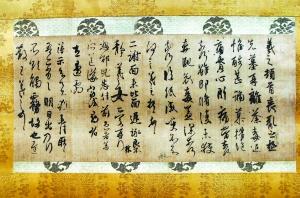 羲之頓首喪亂之極
先墓再離荼毒追
惟酷甚號慕摧絕
痛貫心肝痛當奈何
奈何雖即脩復未獲
奔馳哀毒益深奈何
奈何臨紙感哽不知
何言羲之頓首頓首
二謝面未比面遲詠良
靜羲之女愛再拜
想邵兒悉佳前患者善
左邊劇
得示知足下猶未佳耿耿
吾亦劣劣明日出乃行
不欲觸霧故也遲
散王羲之頓首